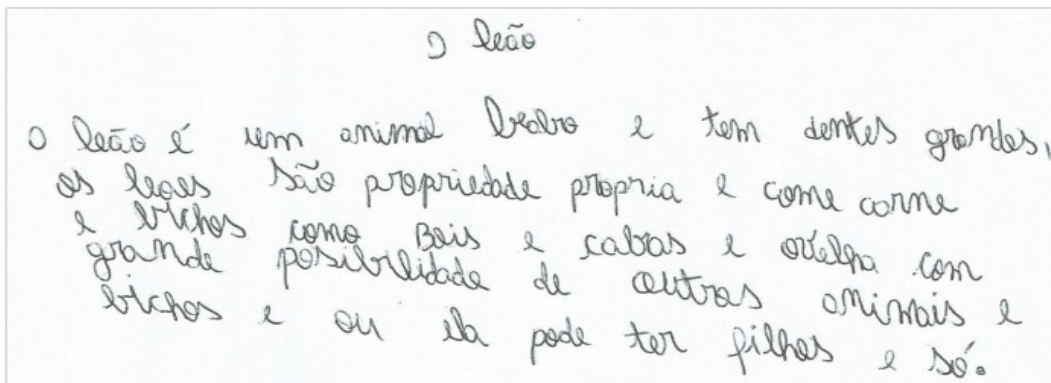 O leão
O leão é um animal brabo e tem dentes grandes,
os leoes são propriedade propria e come carne
e bichos como Bois e cabras e ovelha com
grande posibilidade de outros animais e
bichos e ou ela pode ter filhos e só.